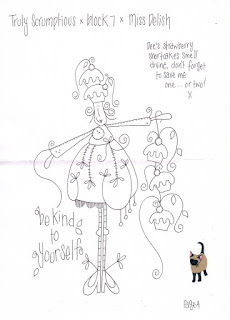 Truly Scrumptious x block 7 x Miss Delish
Dee's strawberry
shortcakes smell
divine, don't forget
to save me
one... or two!
x
be kind
to
yourself